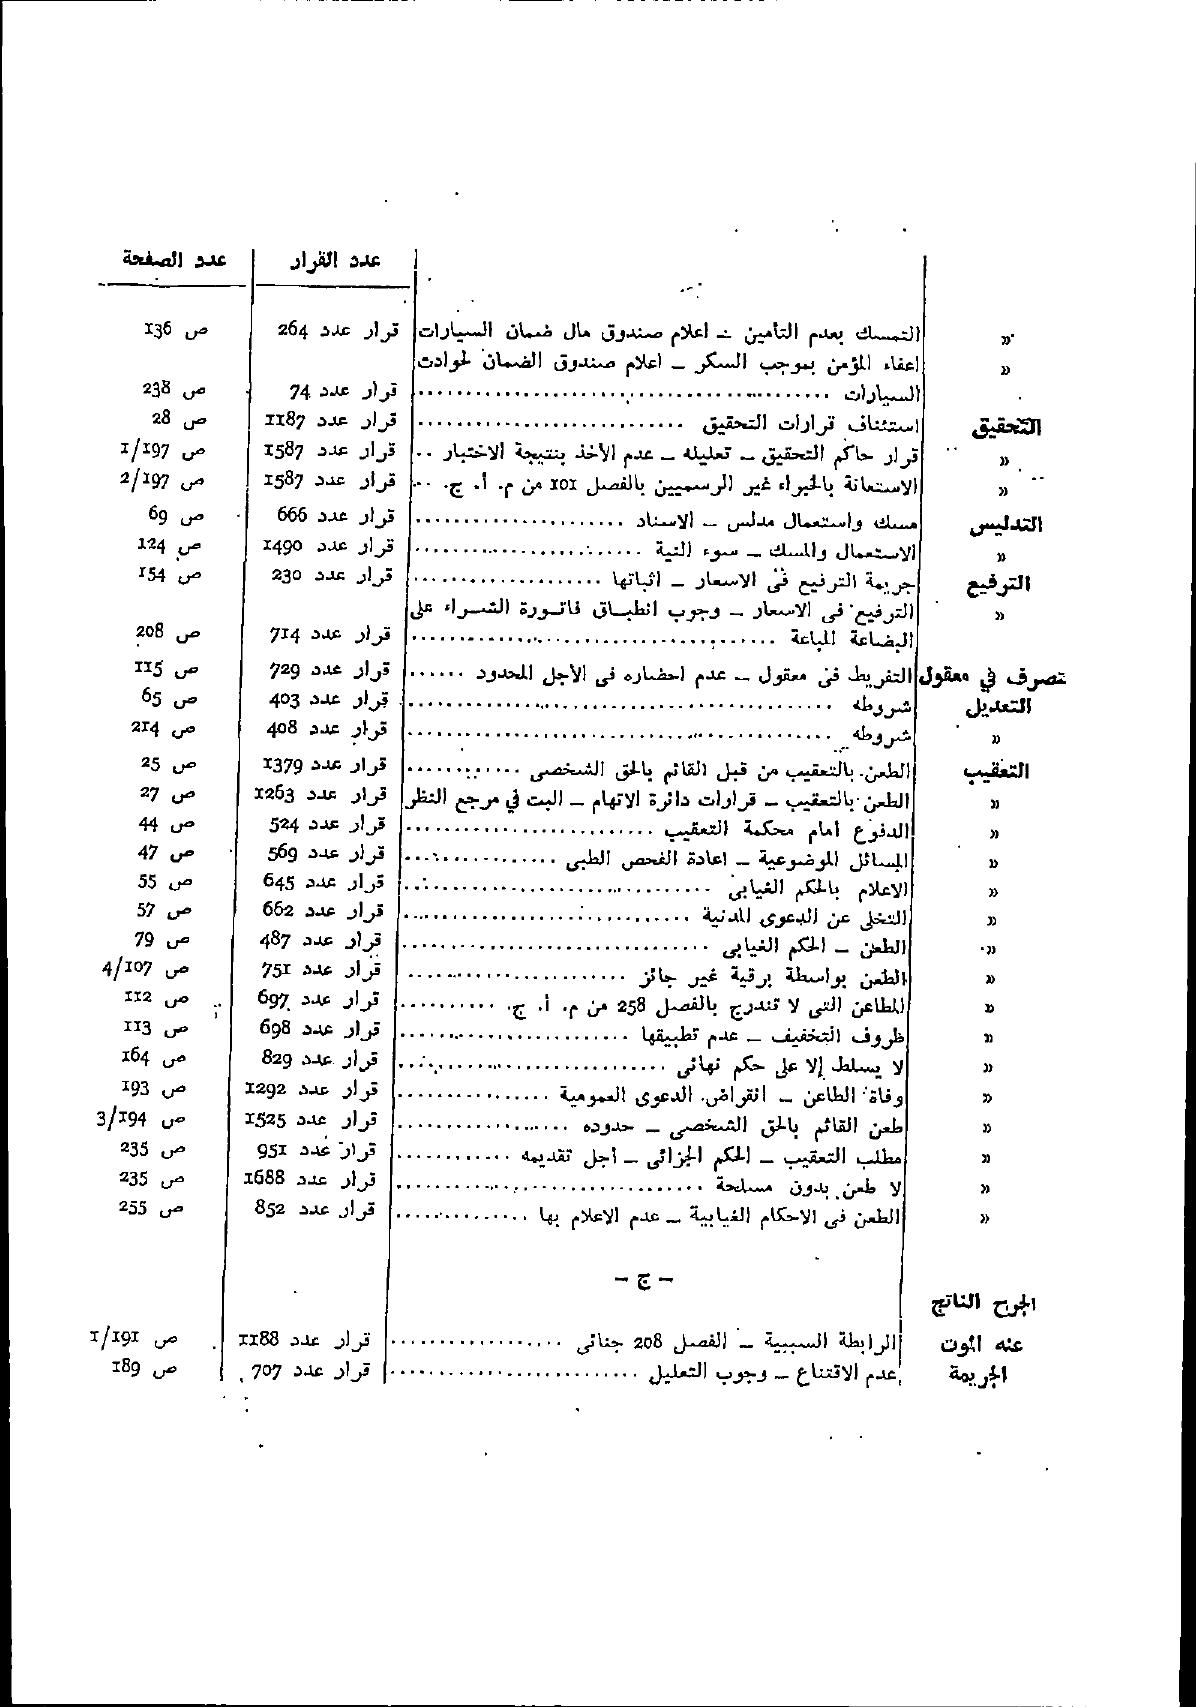 عدد القرار عدد الصفحة
» التمسك بعدم التأمين – اعلام صندوق مال ضمان السيارات قرار عدد 264 ص 136
» اعفاء المؤمن بموجب السكر – اعلام صندوق الضمان لحوادث
السيارات .......... قرار عدد 74 ص 238
التحقيق استئناف قرارات التحقيق .......... قرار عدد 1187 ص 28
» قرار حاكم التحقيق – تعليله – عدم الأخذ بنتيجة الاختبار .. قرار عدد 1587 ص 1/197
» الاستعانة بالخبراء غير الرسميين بالفصل 101 من م. أ. ج. ... قرار عدد 1587 ص 2/197
التدليس مسك واستعمال مدلس – الاسناد .......... قرار عدد 666 ص 69
» الاستعمال والمسك – سوء النية .......... قرار عدد 1490 ص 124
الترفيع جريمة الترفيع في الاسعار – اثباتها .......... قرار عدد 230 ص 154
» الترفيع في الاسعار – وجوب انطباق فاتورة الشراء على
البضاعة المباعة .......... قرار عدد 714 ص 208
تصرف في معقول التفريط في معقول – عدم احضاره في الأجل المحدود ...... قرار عدد 729 ص 115
التعديل شروطه .......... قرار عدد 403 ص 65
» شروطه .......... قرار عدد 408 ص 214
التعقيب الطعن بالتعقيب من قبل القائم بالحق الشخصي .......... قرار عدد 1379 ص 25
» الطعن بالتعقيب – قرارات دائرة الاتهام – البت في مرجع النظر قرار عدد 1263 ص 27
» الدفوع أمام محكمة التعقيب .......... قرار عدد 524 ص 44
» المسائل الموضوعية – اعادة الفحص الطبي .......... قرار عدد 569 ص 47
» الاعلام بالحكم الغيابي .......... قرار عدد 645 ص 55
» التخلي عن الدعوى المدنية .......... قرار عدد 662 ص 57
» الطعن – الحكم الغيابي .......... قرار عدد 487 ص 79
» الطعن بواسطة برقية غير جائز .......... قرار عدد 751 ص 4/107
» المطاعن التي لا تندرج بالفصل 258 من م. أ. ج. .......... قرار عدد 697 ص 112
» ظروف التخفيف – عدم تطبيقها .......... قرار عدد 698 ص 113
» لا يسلط إلا على حكم نهائي .......... قرار عدد 829 ص 164
» وفاة الطاعن – انقراض الدعوى العمومية .......... قرار عدد 1292 ص 193
» طعن القائم بالحق الشخصي – حدوده .......... قرار عدد 1525 ص 3/194
» مطلب التعقيب – الحكم الجزائي – أجل تقديمه .......... قرار عدد 951 ص 235
» لا طعن بدون مصلحة .......... قرار عدد 1688 ص 235
» الطعن في الاحكام الغيابية – عدم الاعلام بها .......... قرار عدد 852 ص 255
– ج –
الجرح الناتج
عنه الموت الرابطة السببية – الفصل 208 جنائي .......... قرار عدد 1188 ص 1/191
الجريمة عدم الاقتناع – وجوب التعليل .......... قرار عدد 707 ص 189